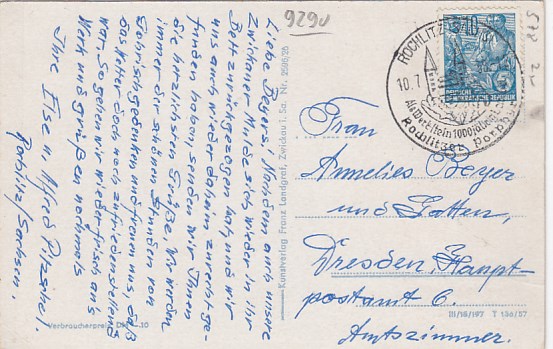 9290
Liebe Beyers, Nachdem auch unsere
Zwickauer Mulde sich wieder in ihr
Bett zurückgezogen hat, und wir
uns auch wieder daheim zurecht ge-
funden haben, senden wir Ihnen
die herzlichsten Grüße. Wir werden
immer der schönen Stunden von
gedenken und freuen uns, daß
das Wetter doch noch zufriedenstellend
war. So gehen wir wieder frisch ans
Werk und grüßen nochmals
Ihre Else u. Alfred
Rochlitz/Sachsen.
Verbraucherpreis DM -.10
Kunstverlag Franz Landgraf, Zwickau i. Sa. Nr. 2596/26
ROCHLITZ (SACHS)
10.7.
Als Werkstein 1000 jährig
Rochlitzer Porphyr
10
Frau
Annelies Beyer
und Gatten,
Dresden, Haupt-
postamt 6.
Amtszimmer.
III/18/197 T 136/57